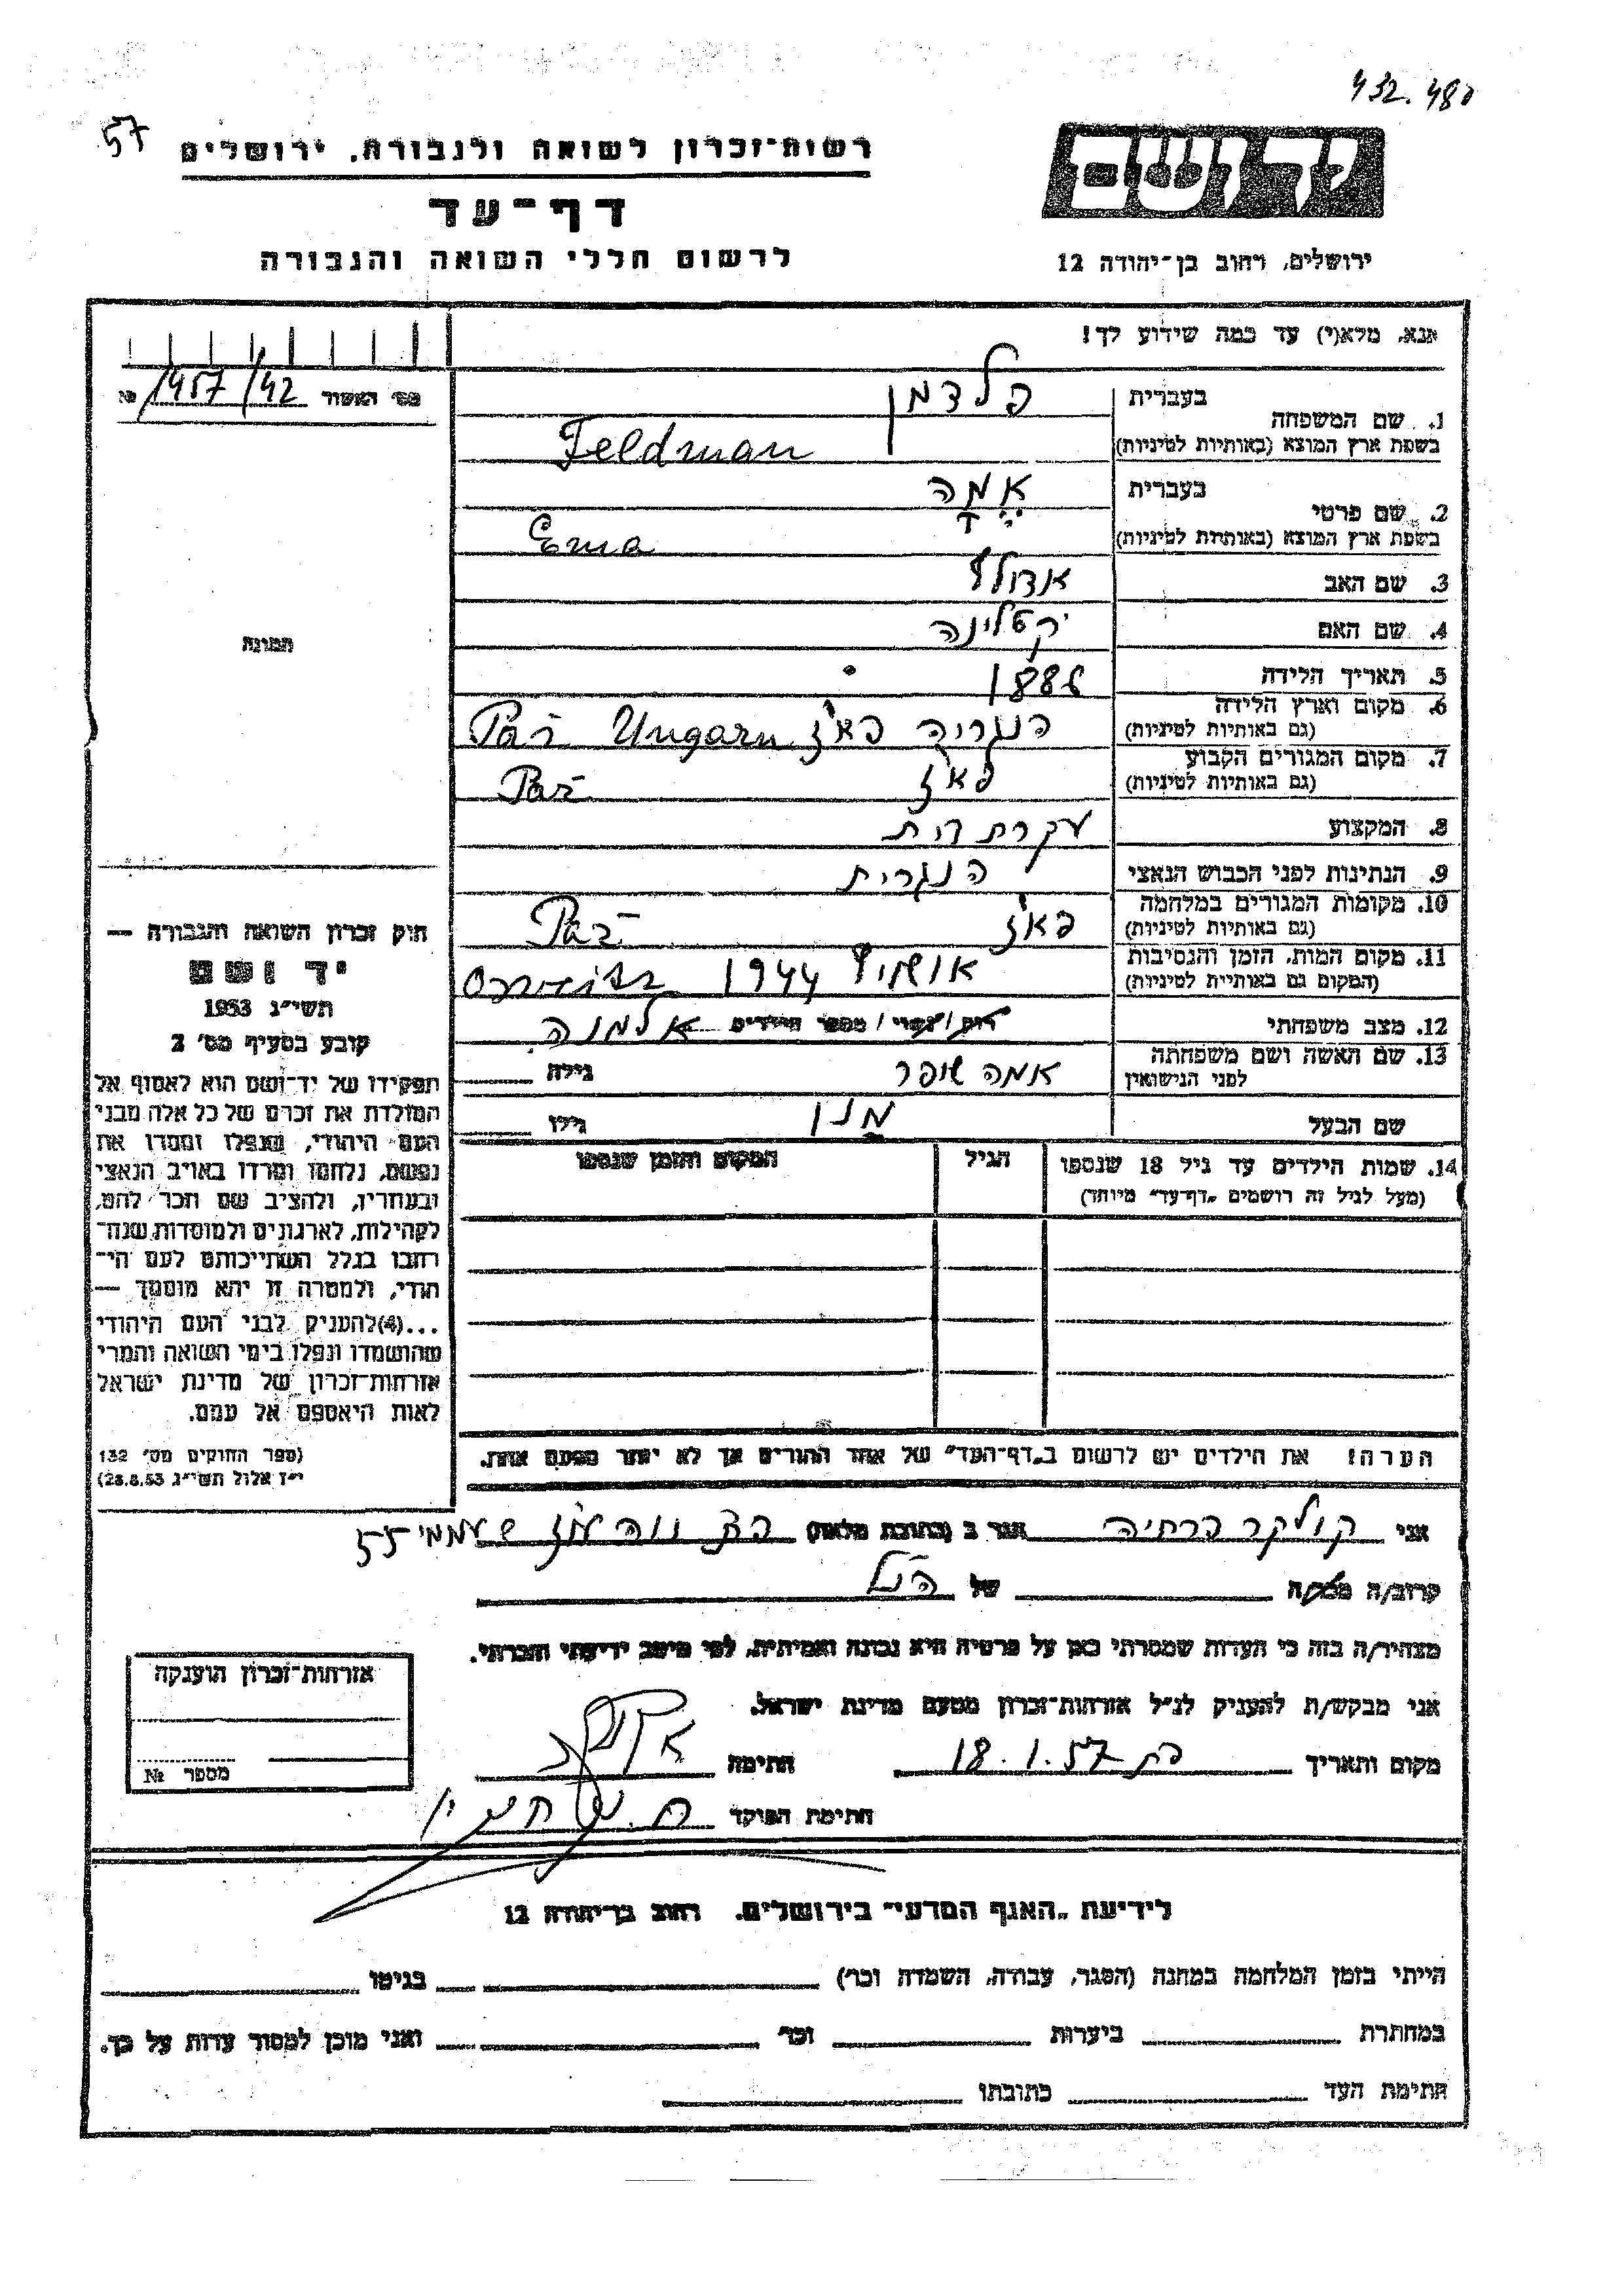 432.480
57
רשות־זכרון לשואה ולגבורה, ירושלים
דף־עד
לרשום חללי השואה והגבורה
ירושלים, רחוב בן־יהודה 12
אנא, מלא(י) עד כמה שידוע לך!
מס׳ האשור 1457/42 №
בעברית פלדמן
1. שם המשפחה
בשפת ארץ המוצא (באותיות לטיניות) Feldman
בעברית אמה
2. שם פרטי
בשפת ארץ המוצא (באותיות לטיניות) Ema
3. שם האב אדולף
4. שם האם
5. תאריך הלידה 1886
6. מקום וארץ הלידה הנגריה פאז
(גם באותיות לטיניות) Paź Ungarn
7. מקום המגורים הקבוע פאז
(גם באותיות לטיניות) Paź
8. המקצוע עקרת בית
9. הנתינות לפני הכבוש הנאצי הנגרית
10. מקומות המגורים במלחמה פאז
(גם באותיות לטיניות) Paź
11. מקום המות, הזמן והנסיבות אושויץ 1944
(המקום גם באותיות לטיניות)
12. מצב משפחתי רווק/נשוי/מספר הילדים אלמנה
13. שם האשה ושם משפחתה אמה שופר גילה
לפני הנישואין
שם הבעל מנן גילו
14. שמות הילדים עד גיל 18 שנספו הגיל המקום והזמן שנספו
(מעל לגיל זה רושמים „דף־עד״ מיוחד)
הערה! את הילדים יש לרשום ב„דף־העד״ של אחד ההורים אך לא יותר מפעם אחת.
התמונה
חוק זכרון השואה והגבורה —
יד ושם
תשי״ג 1953
קובע בסעיף מס׳ 2
תפקידו של יד־ושם הוא לאסוף אל
המולדת את זכרם של כל אלה מבני
העם היהודי, שנפלו ומסרו את
נפשם, נלחמו ומרדו באויב הנאצי
ובעוזריו, ולהציב שם וזכר להם,
לקהילות, לארגונים ולמוסדות שנח־
רבו בגלל השתייכותם לעם הי־
הודי, ולמטרה זו יהא מוסמך —
...(4) להעניק לבני העם היהודי
שהושמדו ונפלו בימי השואה והמרי
אזרחות־זכרון של מדינת ישראל
לאות היאספם אל עמם.
(ספר החוקים מס׳ 132
י״ז אלול תשי״ג 28.8.53)
אני קולקר ברחיה הגר ב (כתובת מלאה)
קרוב/ה מכר/ה של הנ״ל
מצהיר/ה בזה כי העדות שמסרתי כאן על פרטיה היא נכונה ואמיתית, לפי מיטב ידיעתי והכרתי.
אני מבקש/ת להעניק לנ״ל אזרחות־זכרון מטעם מדינת ישראל.
מקום ותאריך 18.1.57 חתימה
חתימת הפוקד
אזרחות־זכרון הוענקה
מספר №
לידיעת „האגף המדעי״ בירושלים, רחוב בן־יהודה 12
הייתי בזמן המלחמה במחנה (הסגר, עבודה, השמדה וכו׳) בגיטו
במחתרת ביערות וכו׳ ואני מוכן למסור עדות על כך.
חתימת העד כתובתו